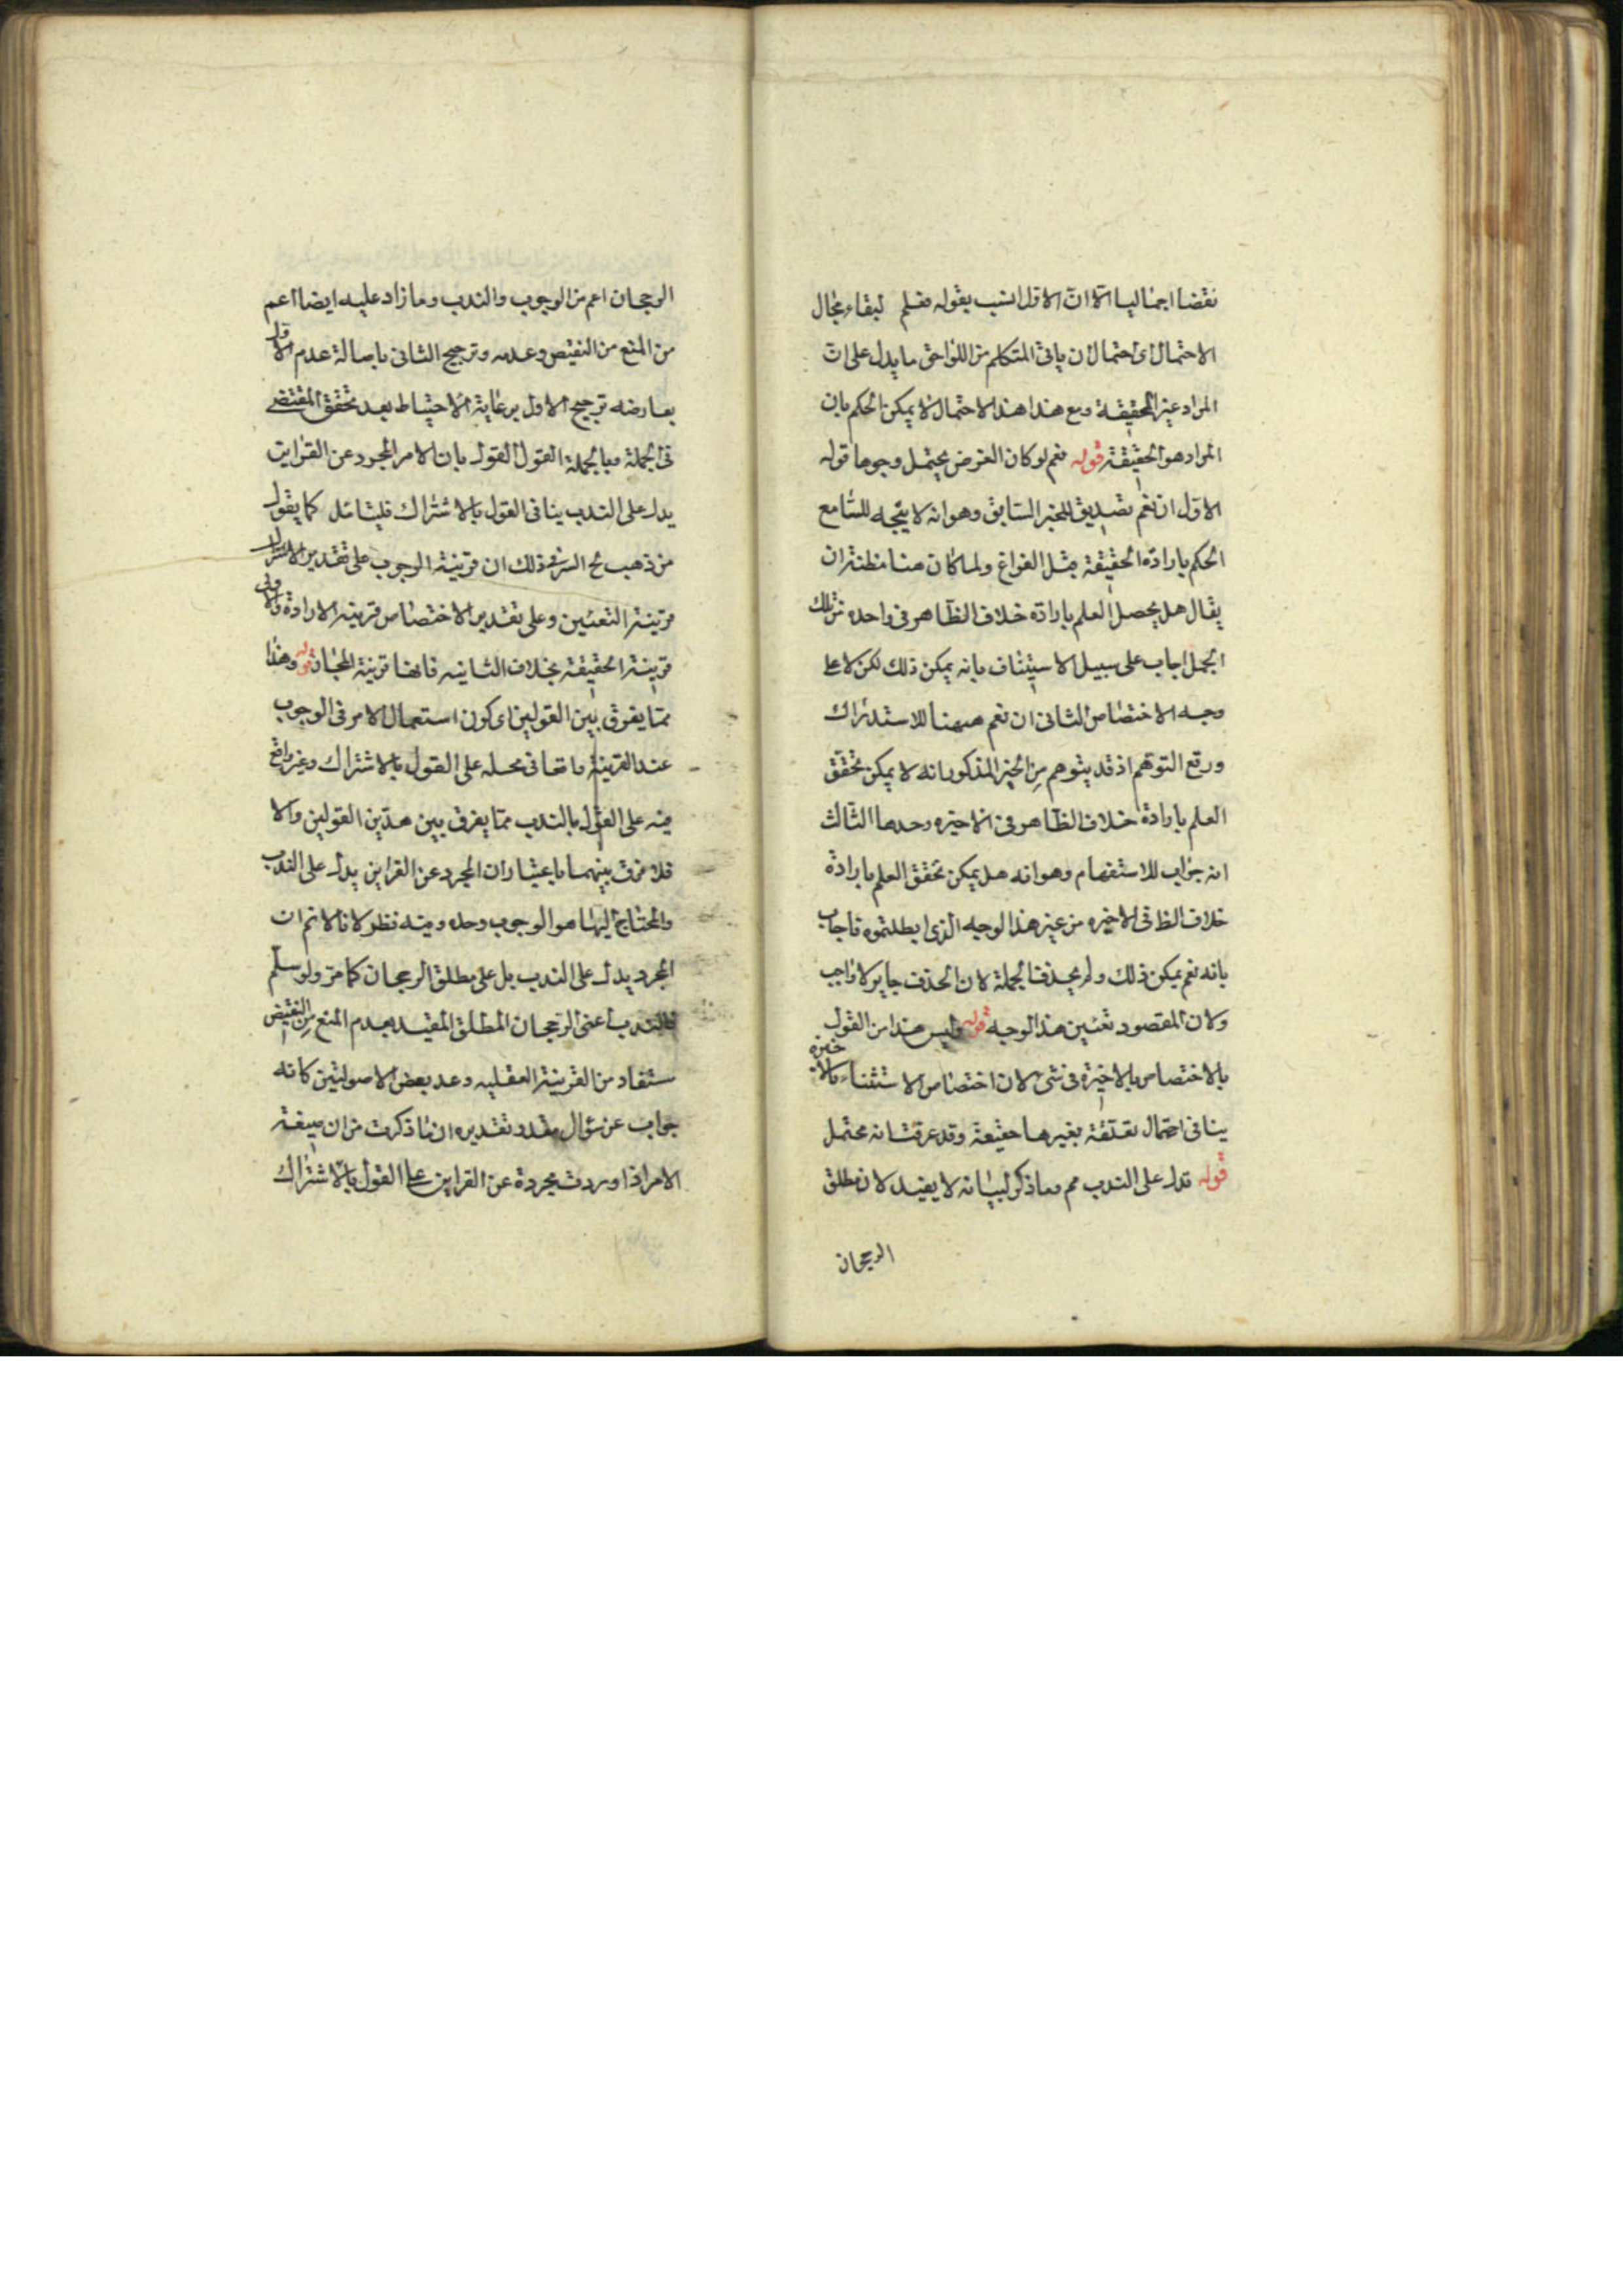 نقضا اجماليا الا ان الاول انسب بقوله فعلم لبقاء مجال
الاحتمال اى احتمال ان ياتى المتكلم من اللواحق ما يدل على ان
المراد غير الحقيقة ومع هذا هذا الاحتمال لا يمكن الحكم بان
المراد هو الحقيقة قوله نعم لو كان الغرض يحتمل وجوها قوله
الاول ان نعم تصديق للخبر السابق وهو انه لا يتجه للسامع
الحكم بارادة الحقيقة قبل الفراغ ولما كان هنا مظنة ان
يقال هل يحصل العلم بارادة خلاف الظاهر فى واحدة من تلك
الجمل اجاب على سبيل الاستيناف بانه يمكن ذلك لكن لا على
وجه الاختصاص الثانى ان نعم ههنا للاستدراك
ورفع التوهم اذ قد يتوهم من الخبر المذكور انه لا يمكن تحقق
العلم بارادة خلاف الظاهر فى الاخيرة وحدها الثالث
انه جواب للاستفهام وهو انه هل يمكن تحقق العلم بارادة
خلاف الظ فى الاخيره من غير هذا الوجه الذى ابطلتموه فاجاب
بانه نعم يمكن ذلك ولم يحذف الجملة لان الحذف جايز لا واجب
ولان المقصود تعيين هذا الوجه قوله وليس هذا من القول
بالاختصاص بالاخيرة فى شئ لان اختصاص الاستثناء بالاخيرة
ينافى احتمال تعلقه بغيرها حقيقة وقد عرفت انه محتمل
قوله فدل على الندب مم وما ذكر لبيانه لا يفيد لان مطلق
الرجحان
الرجحان اعم من الوجوب والندب وما زاد عليه ايضا اعم
من المنع من النقيض وعدمه وترجيح الثانى باصالة عدم الاول
يعارضه ترجيح الاول برعاية الاحتياط بعد تحقق المقتضى
فى الجملة وبالجملة القول القول بان الامر المجرد عن القراين
يدل على الندب ينافى القول بالاشتراك فليتامل كما يقول
من ذهب الخ السر فى ذلك ان قرينة الوجوب على تقدير الاشتراك
قرينة التعيين وعلى تقدير الاختصاص قرينة الارادة والاولى
قرينة الحقيقة بخلاف الثانيه فانها قرينة المجاز قوله وهذا
مما يفرق بين القولين اى كون استعمال الامر فى الوجوب
عند القرينة واقعا فى محله على القول بالاشتراك وغير واقع
فيه على القول بالندب مما يفرق بين هذين القولين والا
فلا فرق بينهما باعتبار ان المجرد عن القراين يدل على الندب
والمحتاج اليها هو الوجوب وحده وفيه نظر لانا لا نم ان
المجرد يدل على الندب بل على مطلق الرجحان كما مر ولو سلم
فالندب اعنى الرجحان المطلق المقيد بعدم المنع من النقيض
ستفاد من القرينة العقليه وعد بعض الاصوليين كانه
جواب عن سؤال مقدر تقديره ان ما ذكرت من ان صيغة
الامر اذا وردت مجردة عن القراين على القول بالاشتراك